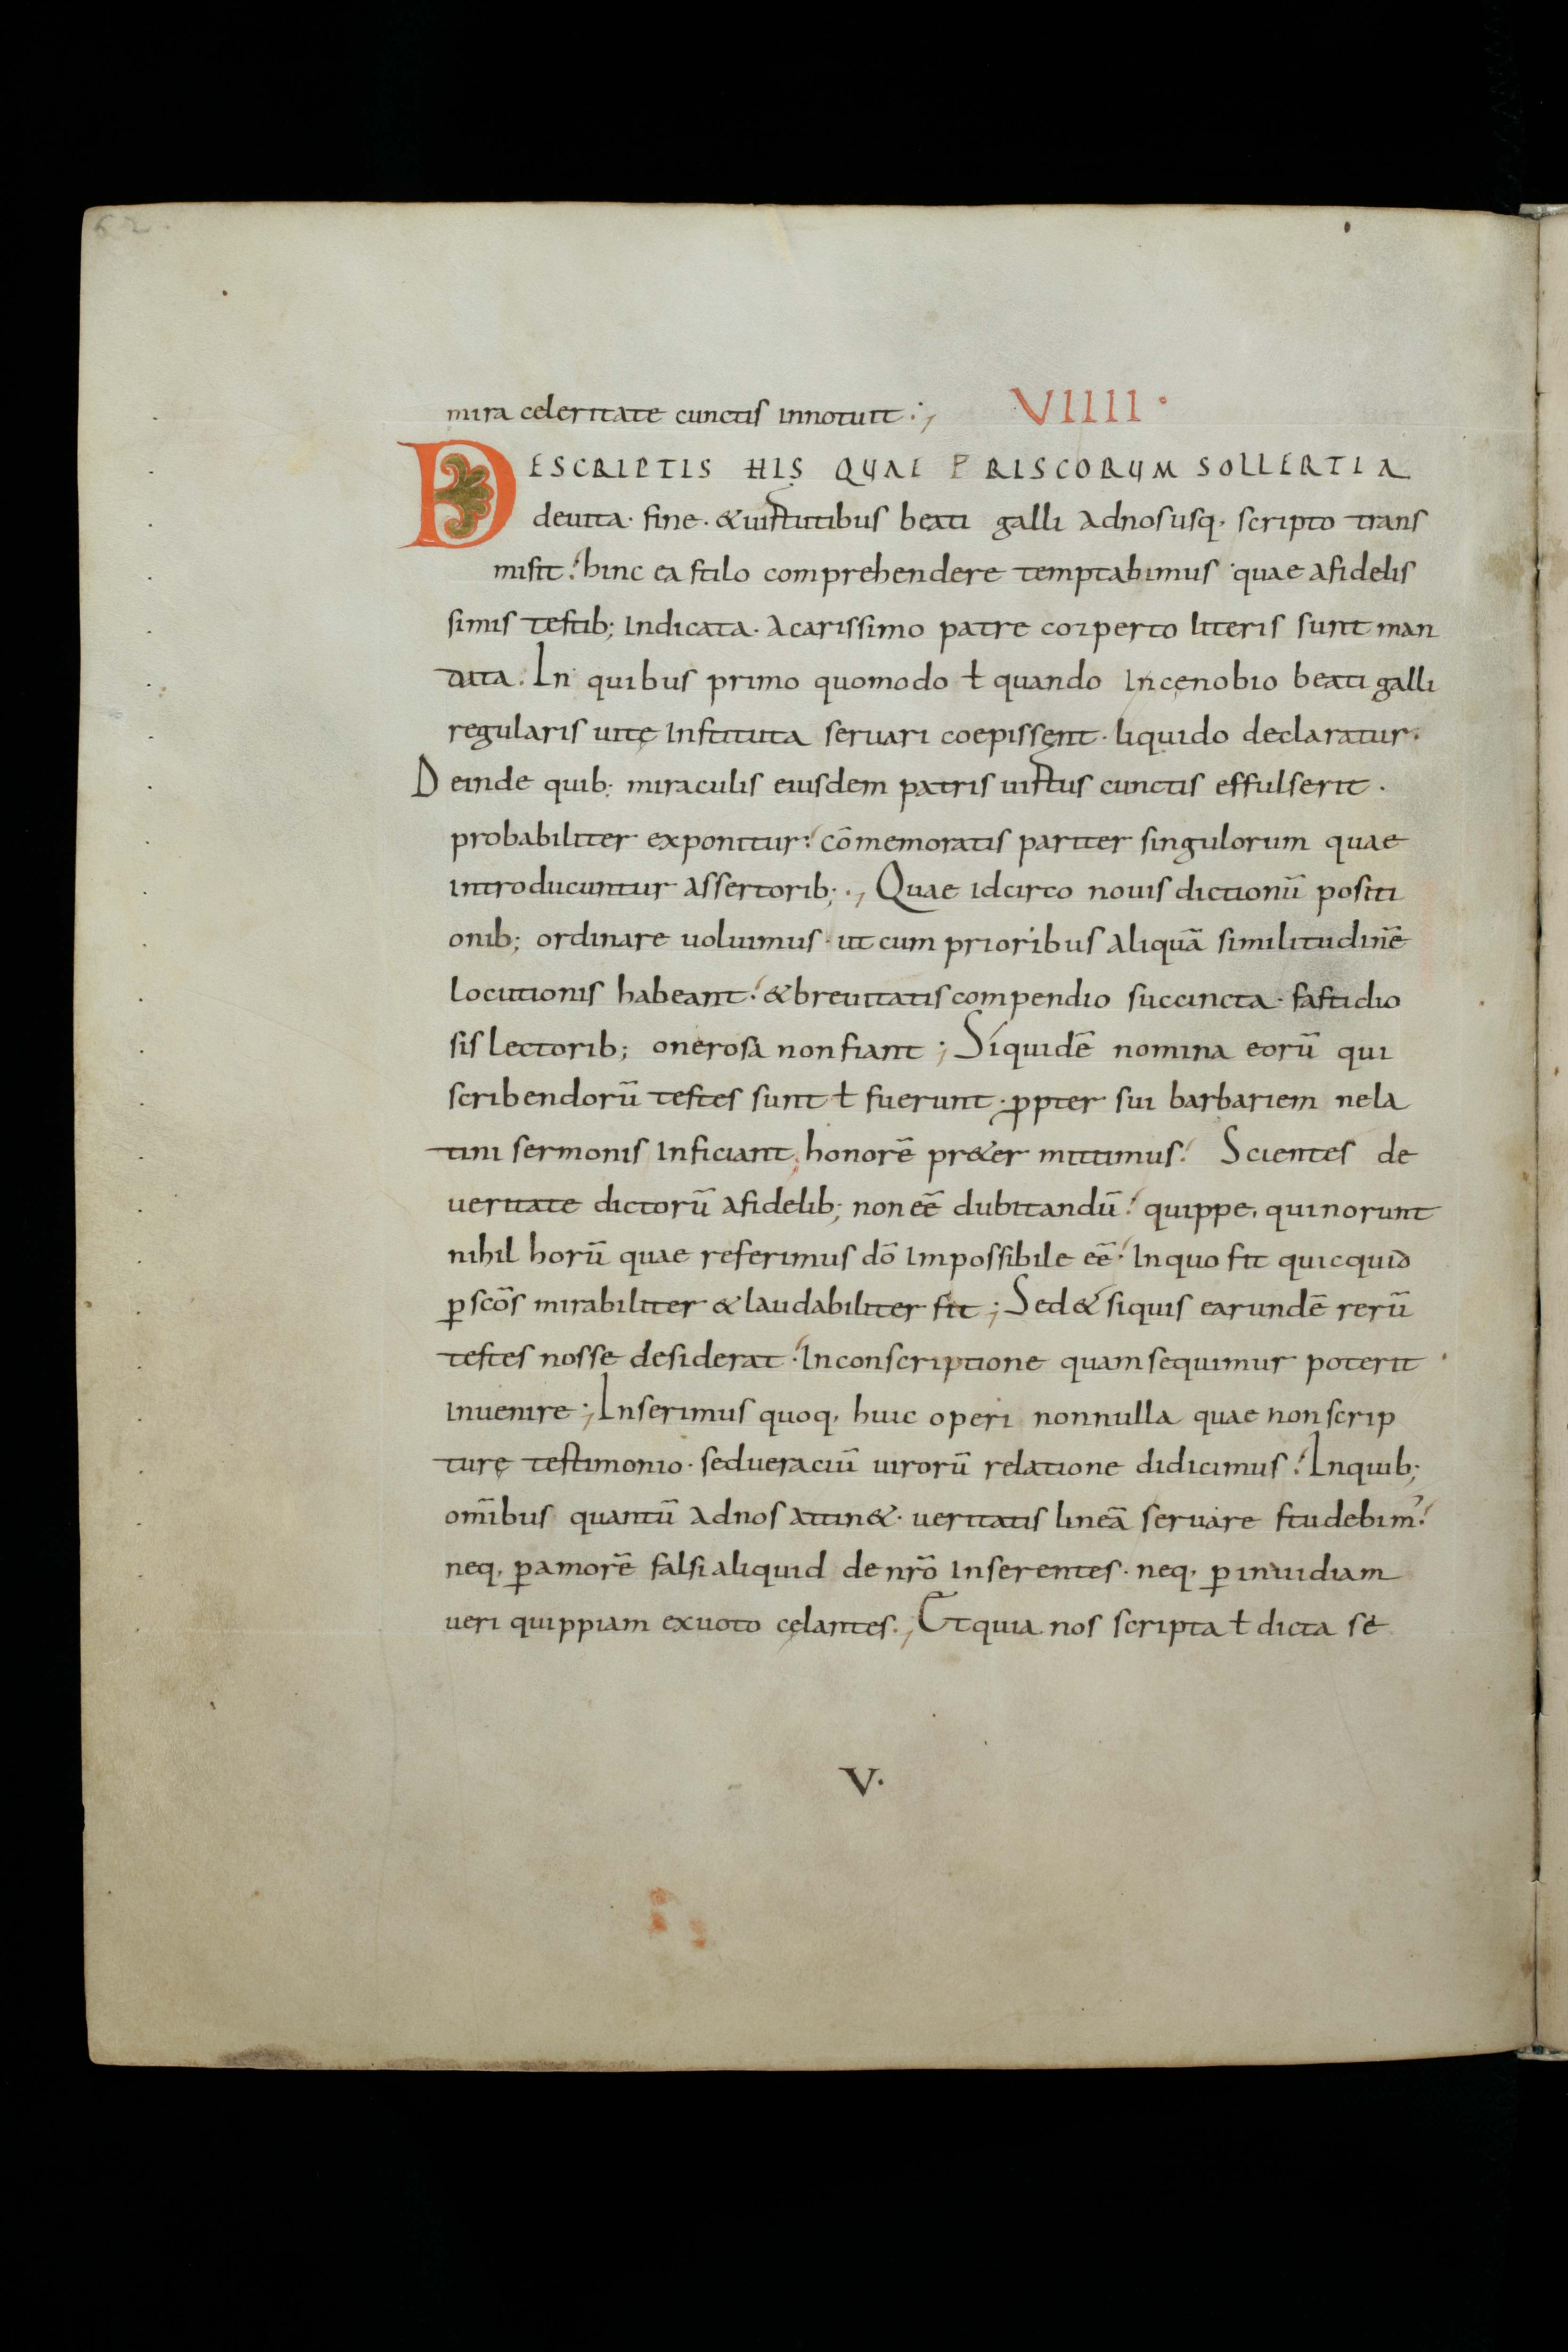 62.
mira celeritate cunctis innotuit·, VIIII·
DESCRIPTIS HIS QUAE PRISCORUM SOLLERTIA
deuita· fine· &uirtutibus beati galli adnosusq· scripto trans
misit: hinc ea stilo comprehendere temptabimus quae afidelis
simis testib; indicata· acarissimo patre cozperto literis sunt man
data. In quibus primo quomodo ł quando incęnobio beati galli
regularis uitę instituta seruari coepissęnt· liquido declaratur·
Deinde quib; miraculis eiusdem patris uirtus cunctis effulserit·
probabiliter exponitur: cōmemoratis pariter singulorum quae
introducuntur assertorib;·, Quae idcirco nouis dictionū positi
onib; ordinare uoluimus· ut cum prioribus aliquā similitudinē
locutionis habeant: &breuitatis compendio succincta· fastidio
sis lectorib; onerosa nonfiant; Siquidē nomina eorū qui
scribendorū testes sunt ł fuerunt· ꝓpter sui barbariem nela
tini sermonis inficiant honorē pr&er mittimus: Scientes de
ueritate dictorū afidelib; non eē dubitandū: quippe· quinorunt
nihil horū quae referimus dō impossibile eē: Inquo fit quicquid
ꝑ scōs mirabiliter &laudabiliter fit; Sed& siquis earundē rerū
testes nosse desiderat: Inconscriptione quamsequimur poterit
inuenire; Inserimus quoq· huic operi nonnulla quae nonscrip
turę testimonio· sedueraciū uirorū relatione didicimus: Inquib;
om̄ibus quantū adnos attin&· ueritatis lineā seruare studebim᾽:
neq· ꝑamorē falsi aliquid de nr̄o inserentes· neq· ꝑ inuidiam
ueri quippiam exuoto cęlantes·, Etquia nos scripta ł dicta se
V·